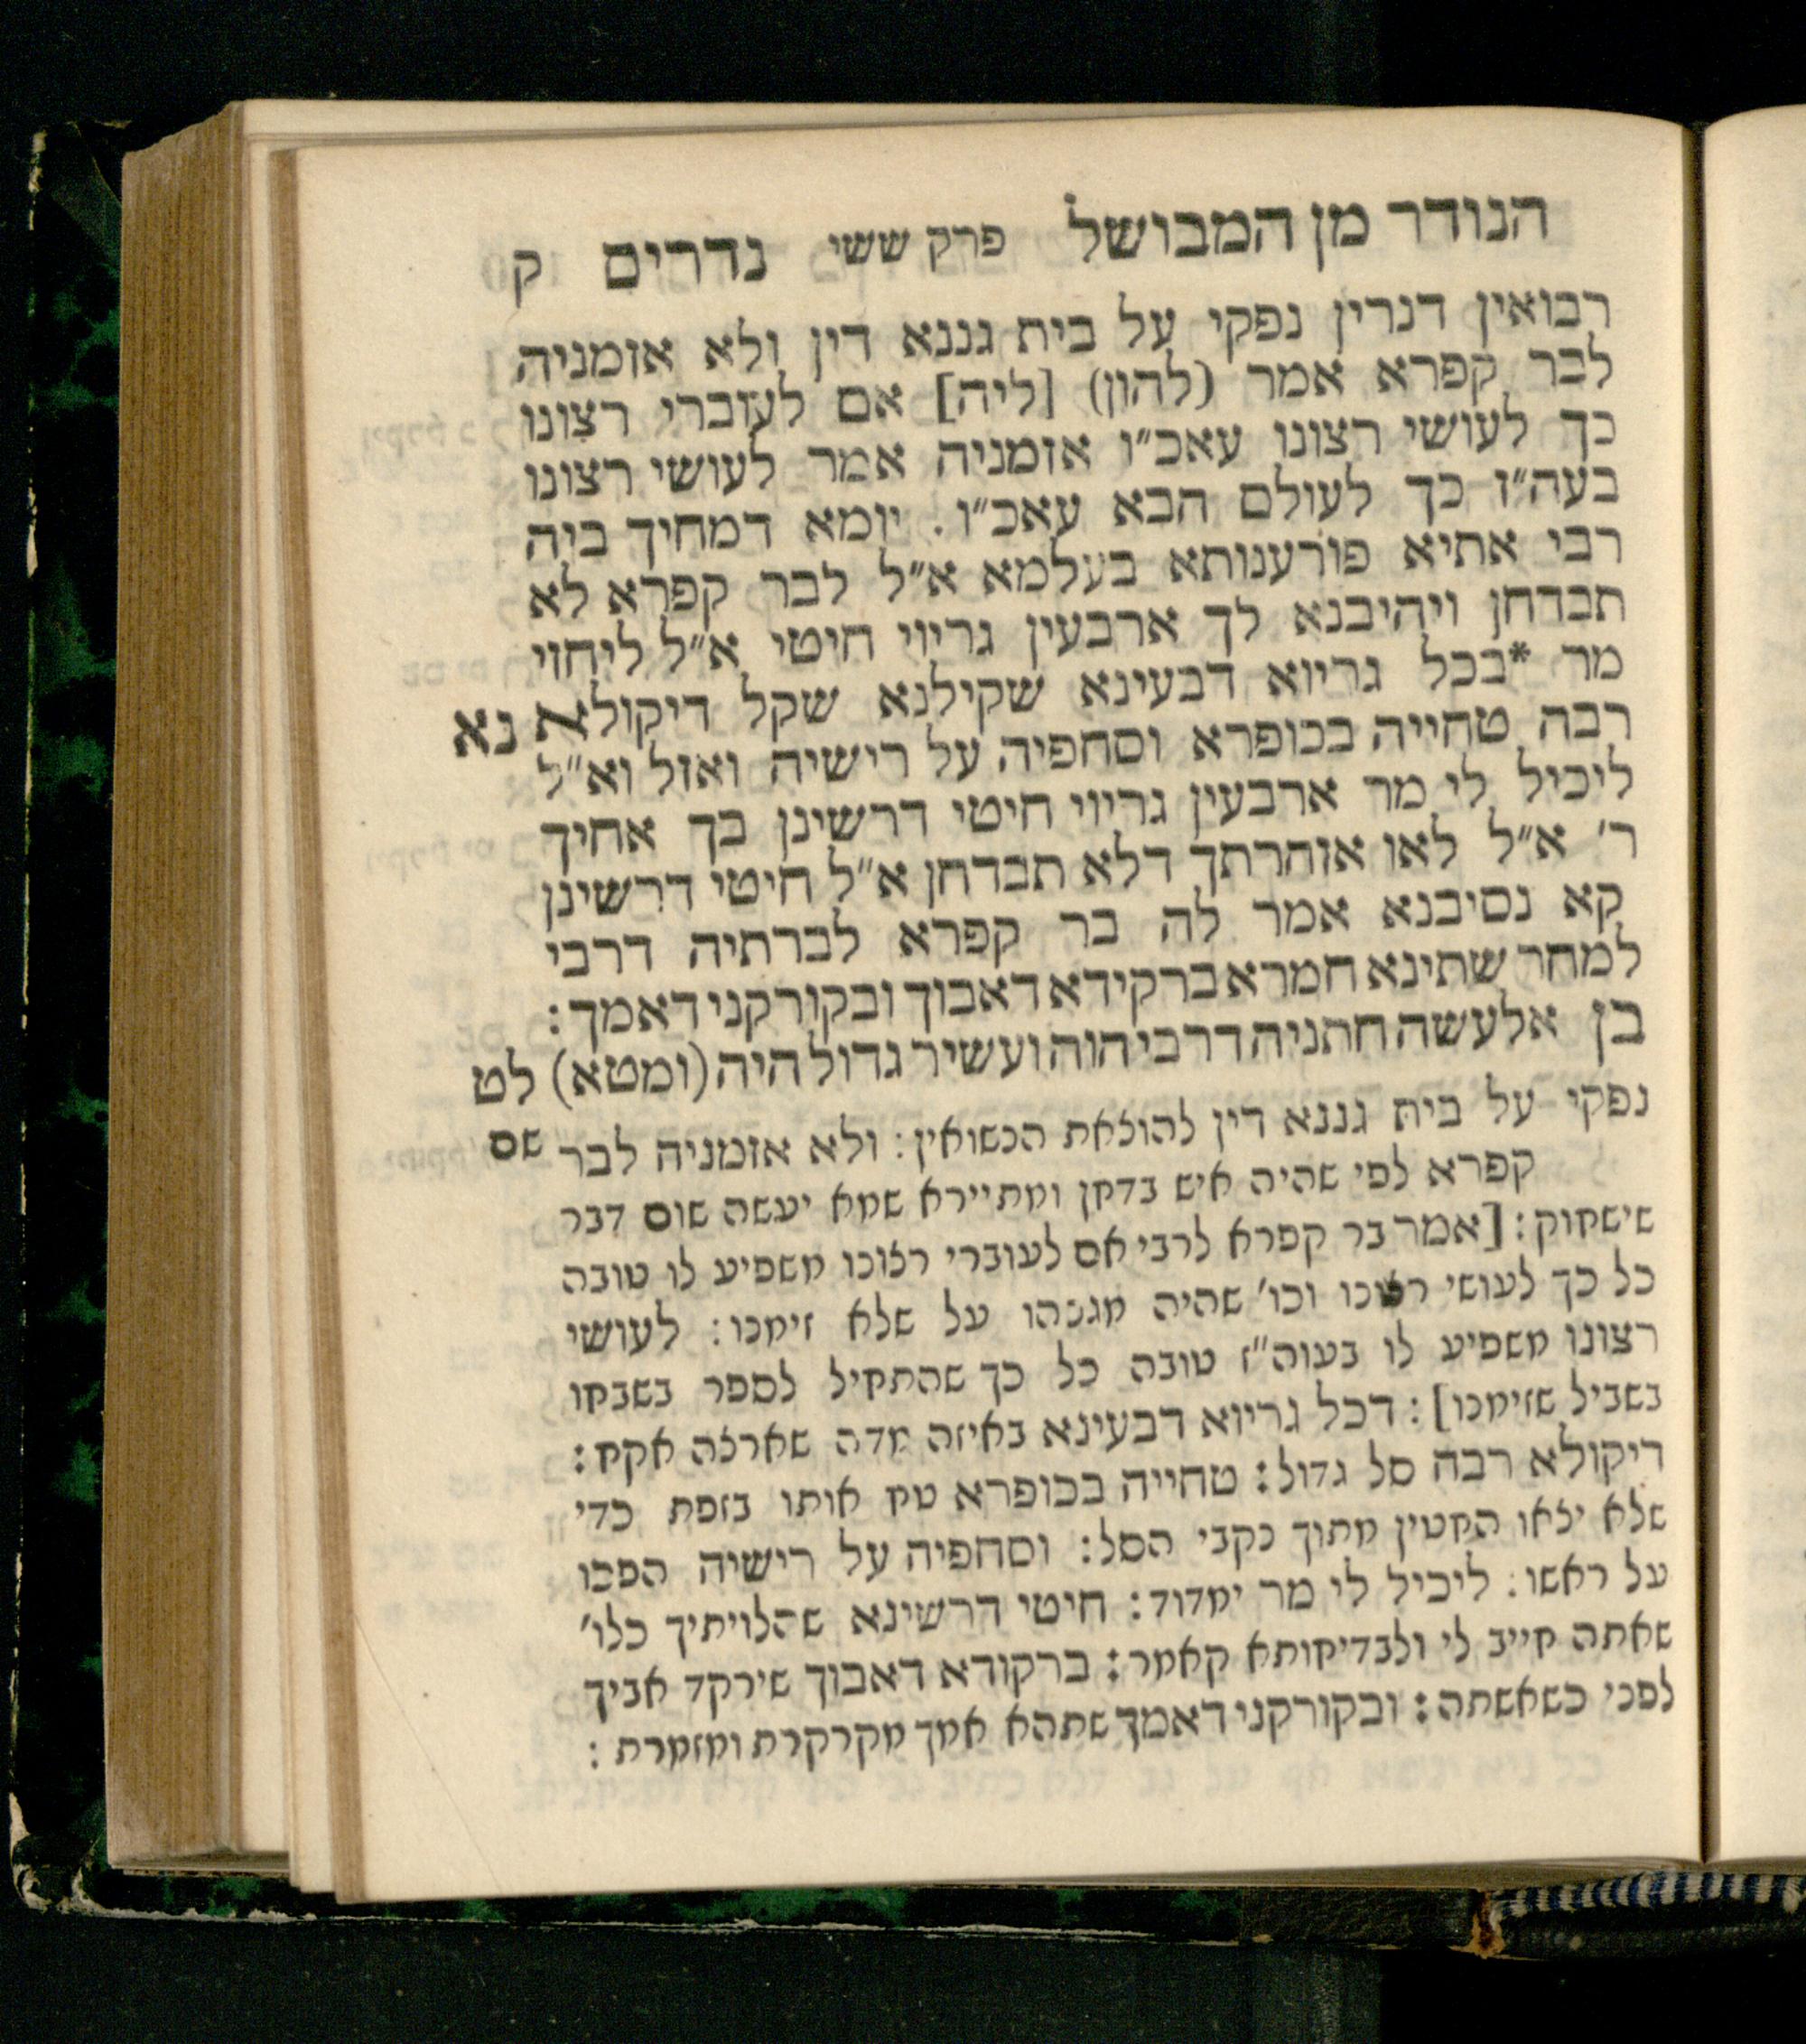 הנודר מן המבושל פרק ששי נדרים ק
רבואין דנרין נפקי על בית גננא דין ולא אזמניה
לבר קפרא אמר (להון) [ליה] אם לעוברי רצונו
כך לעושי רצונו עאכ״ו אזמניה אמר לעושי רצונו
בעה״ז כך לעולם הבא עאכ״ו. יומא דמחיך ביה
רבי אתיא פורענותא בעלמא א״ל לבר קפרא לא
תבדחן ויהיבנא לך ארבעין גריוי חיטי א״ל ליחזי
מר *בכל גריוא דבעינא שקילנא שקל דיקולא נא
רבה טחייה בכופרא וסחפיה על רישיה ואזל וא״ל
ליכיל לי מר ארבעין גריוי חיטי דרשינן בך אחיך
ר׳ א״ל לאו אזהרתך דלא תבדחן א״ל חיטי דרשינן
קא נסיבנא אמר לה בר קפרא לברתיה דרבי
למחר שתינא חמרא ברקידא דאבוך ובקורקני דאמך:
בן אלעשה חתניה דרבי הוה ועשיר גדול היה (ומטא) לט
נפקי על בית גננא דין להוצאת הנשואין: ולא אזמניה לבר שם
קפרא לפי שהיה איש בדחן ומתיירא שמא יעשה שום דבר
שישחוק: [אמר בר קפרא לרבי אם לעוברי רצונו משפיע לו טובה
כל כך לעושי רצונו וכו׳ שהיה מגנהו על שלא זימנו: לעושי
רצונו משפיע לו בעוה״ז טובה כל כך שהתחיל לספר בשבחו
בשביל שזימנו]: דכל גריוא דבעינא באיזה מדה שארצה אקח:
דיקולא רבה סל גדול: טחייה בכופרא טח אותו בזפת כדי
שלא יצאו החטין מתוך נקבי הסל: וסחפיה על רישיה הפכו
על ראשו: ליכיל לי מר ימדוד: חיטי דרשינא שהלויתיך כלו׳
שאתה חייב לי ולבדיחותא קאמר: ברקודא דאבוך שירקד אביך
לפני כשאשתה: ובקורקני דאמך שתהא אמך מקרקרת ומזמרת: